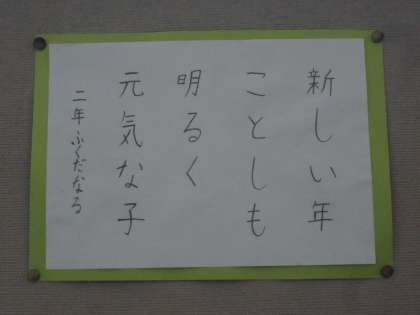 新しい年
ことしも
明るく
元気な子
二年ふくだなる